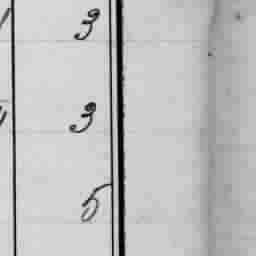 3
3
5